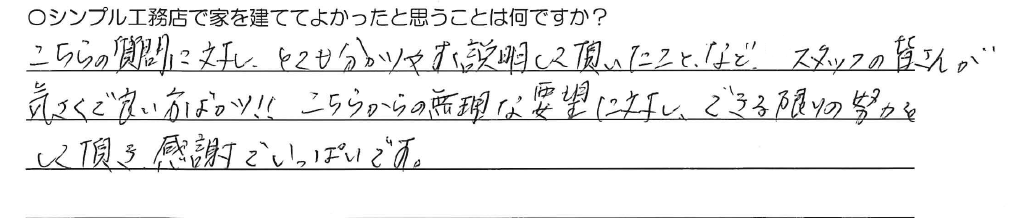 ○シンプル工務店で家を建ててよかったと思うことは何ですか？
こちらの質問に対し、とても分かりやすく説明して頂いたこと、など、スタッフの皆さんが
気さくで良い方ばかり!! こちらからの無理な要望に対し、できる限りの努力を
して頂き、感謝でいっぱいです。